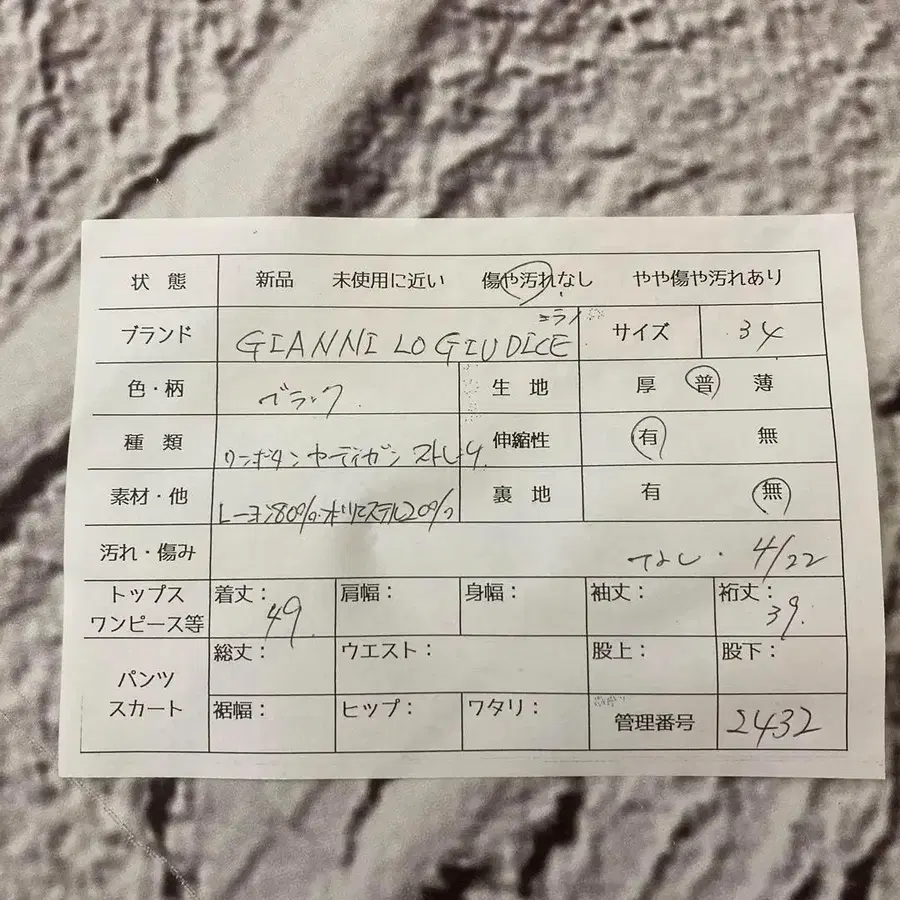 状態 新品 未使用に近い 傷や汚れなし やや傷や汚れあり
ブランド GIANNI LO GIUDICE サイズ 34
色・柄 ブラック 生地 厚 普 薄
種類 ワンボタン カーディガン 伸縮性 有 無
素材・他 レーヨン80%・ポリエステル20% 裏地 有 無
汚れ・傷み なし. 4/22
トップス ワンピース等 着丈: 49 肩幅: 身幅: 袖丈: 裄丈: 39.
パンツ スカート 総丈: ウエスト: 股上: 股下:
裾幅: ヒップ: ワタリ: 管理番号 2432